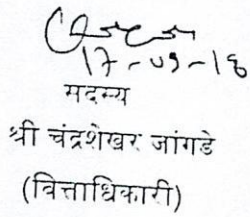 17-09-18
सदस्य
श्री चंद्रशेखर जांगडे
(वित्ताधिकारी)